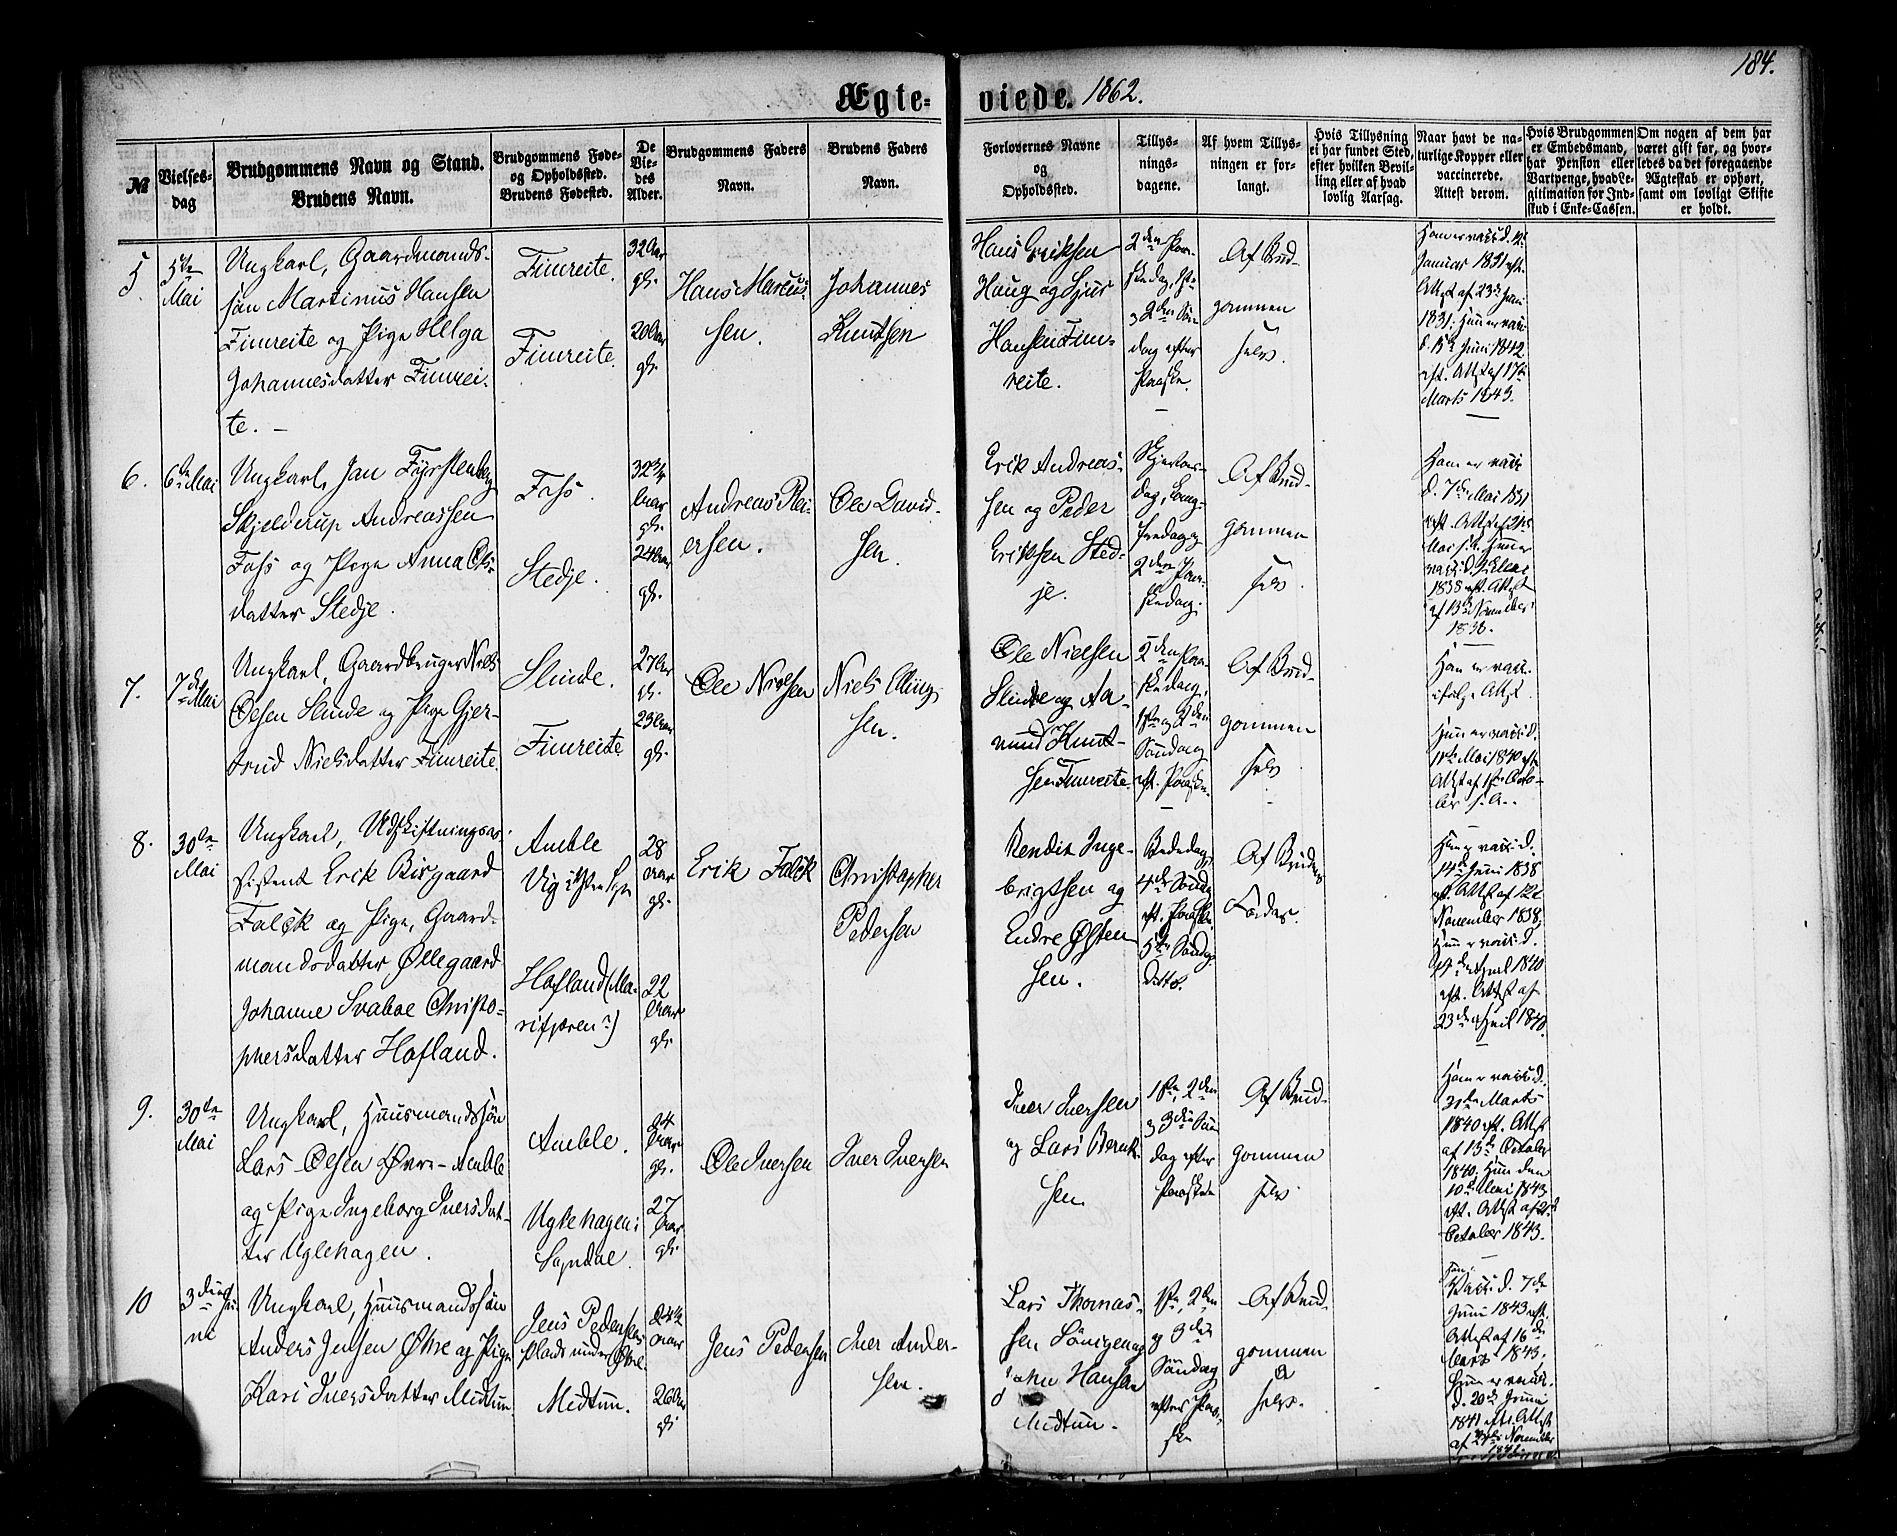 184.
Ægte-
viede. 1862.
№
Vielses-
dag
Brudgommens Navn og Stand.
Brudens Navn.
Brudgommens Føde-
og Opholdssted.
Brudens Fødested.
De
Vie-
des
Alder.
Brudgommens Faders
Navn.
Brudens Faders
Navn.
Forlovernes Navne
og
Opholdssted.
Tillys-
nings-
dagene.
Af hvem Tillys-
ningen er for-
langt.
Hvis Tillysning
ei har fundet Sted,
efter hvilken Bevil-
ling eller af hvad
lovlig Aarsag.
Naar havt de na-
turlige Kopper eller
vaccinerede.
Attest derom.
Hvis Brudgommen
er Embedsmand,
har Pension eller
Vartpenge, hvad Le-
gitimation for Ind-
skud i Enke-Cassen.
Om nogen af dem har
været gift før, og hvor-
ledes da det foregaaende
Ægteskab er ophørt,
samt om lovligt Skifte
er holdt.
5.
5te
Mai
Ungkarl, Gaardmands-
søn Martinus Hansen
Fimreite og Pige Helga
Johannesdatter Fimrei-
te. –
Fimreite.
Fimreite.
32 Aar
gl.
20 Aar
gl.
Hans Marcus-
sen.
Johannes
Knutsen
Hans Eriksen
Haug og Sjur
Hansen Fim-
reite.
2den Paa-
skedag, 1ste
og 2den Søn-
dag efter
Paaske.
Af Brud-
gommen
selv.
Januar 1831 eft.
Attest af 23de Juni
1831; Hun er vacc.
d. 15de Juni 1842
eft. Attest af 17de
Marts 1843.
6.
6te Mai
Ungkarl, Jan Fyrstenberg
Skjelderup Andreassen
Foss og Pige Anna Ols-
datter Stedje.
Foss.
Stedje.
32 3/4
Aar
gl.
24 Aar
gl.
Andreas Rei-
ersen.
Ole David-
sen.
Erik Andreas-
sen og Peder
Eriksen Sted-
je.
Skjertors-
dag, Lang-
fredag og
2den Paa-
skedag.
Af Brud-
gommen
selv.
Han er vacc.
d. 7de Mai 1831
eft. Attest af 21de
Mai s. A. Hun er
1838 eft. Attest
af 13de November
1838.
7.
7de Mai
Ungkarl, Gaardbruger Niels
Olsen Slinde og Pige Gjer-
trud Nielsdatter Fimreite.
Slinde.
Fimreite
27 Aar
gl.
23 Aar
gl.
Ole Nielsen
Niels Elling-
sen.
Ole Nielsen
Slinde og Aa-
mund Knut-
sen Fimreite.
2den Paa-
skedag,
1ste og 2den
Søndag
eft. Paaske.
Af Brud-
gommen
selv.
Han er vacc.
ifølge Attest.
Hun er vacc. d.
11te Mai 1840 eft.
Attest af 1ste Octo-
ber s. A.
8.
30te
Mai
Ungkarl, Udskiftningsas-
sistent Erik Bisgaard
Falck og Pige, Gaard-
mandsdatter Øllegaard
Johanne Svaboe Christo-
phersdatter Hafland.
Amble
Vig i Ytre Sogn
Hafland (Ma-
rifjæren?)
28
Aar
gl.
22
Aar
gl.
Erik Falck
Christopher
Pedersen
Bendix Inge-
brigtsen og
Endre Østen-
sen.
Bededag,
4de Søndag
eft. Paaske
5te Søndag
ditto.
Af Brudens
Fader.
Han er vacc. d.
14de Juni 1838
eft. Attest af 12te
November 1838,
Hun er vacc. d.
eft. Attest af
23de April 1840.
9.
30te
Mai
Ungkarl, Huusmandssøn
Lars Olsen Øvre-Amble
og Pige Ingeborg Iversdat-
ter Uglehagen.
Amble.
Uglehagen i
Sogndal.
24
Aar
gl.
27
Aar
gl.
Ole Iversen
Iver Iversen
Iver Iversen
og Lars Bernt-
sen
1ste, 2den
og 3die Søn-
dag efter
Paaske
Af Brud-
gommen
selv.
Han er vacc. d.
31te Marts
1840 eft. Attest
af 13de October
1840. Hun den
10de Mai 1843
October 1843.
10
3die Ju-
ni
Ungkarl, Huusmandssøn
Anders Jensen Øvre og Pige
Kari Iversdatter Midtun.
Jens Pedersens
Plads under Øvre.
Midtun.
24 1/2
Aar
26 Aar
gl.
Jens Pedersen
Iver Ander-
sen.
Lars Thomas-
John Hansen
Midtun.
1ste, 2den
og 3die
Søndag
efter Paa-
ske
Af Brud-
gommen
selv.
Han
vacc. d. 7de
Juni 1843 eft.
Attest af 16de
1843.
Hun er vacc.
d. 20de Juni
1841 eft. Attest
November